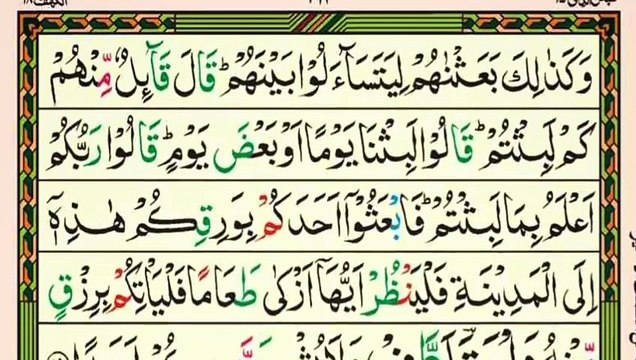 وَكَذٰلِكَ بَعَثْنٰهُمْ لِيَتَسَآءَلُوْا بَيْنَهُمْ ؕ قَالَ قَآئِلٌ مِّنْهُمْ
كَمْ لَبِثْتُمْ ؕ قَالُوْا لَبِثْنَا يَوْمًا اَوْ بَعْضَ يَوْمٍ ؕ قَالُوْا رَبُّكُمْ
اَعْلَمُ بِمَا لَبِثْتُمْ ؕ فَابْعَثُوْۤا اَحَدَكُمْ بِوَرِقِكُمْ هٰذِهٖۤ
اِلَى الْمَدِيْنَةِ فَلْيَنْظُرْ اَيُّهَاۤ اَزْكٰى طَعَامًا فَلْيَاْتِكُمْ بِرِزْقٍ